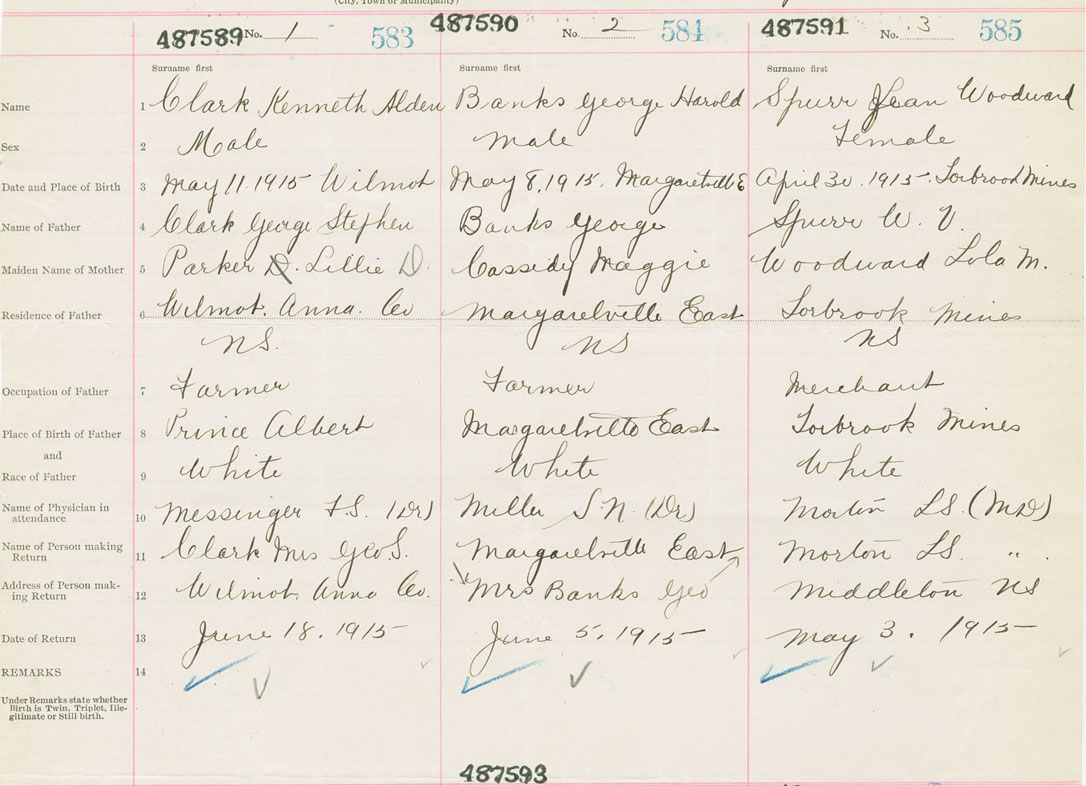 (City, Town or Municipality)
487589 No. 1 583 487590 No. 2 584 487591 No. 3 585
Surname first Surname first Surname first
Name 1 Clark Kenneth Alden Banks George Harold Spurr Jean Woodward
Sex 2 Male Male Female
Date and Place of Birth 3 May 11.1915 Wilmot May 8.1915. Margaretville E April 30.1915. Torbrook Mines
Name of Father 4 Clark George Stephen Banks George Spurr W. V.
Maiden Name of Mother 5 Parker D. Lillie D. Cassidy Maggie Woodward Lola M.
Residence of Father 6 Wilmot. Anna. Co Margaretville East Torbrook Mines
NS. NS NS
Occupation of Father 7 Farmer Farmer Merchant
Place of Birth of Father 8 Prince Albert Margaretville East Torbrook Mines
and
Race of Father 9 White White White
Name of Physician in
attendance 10 Messinger F.S. (Dr) Miller S.N. (Dr) Morton LS. (MD)
Name of Person making
Return 11 Clark Mrs Geo S. Margaretville East Morton LS. " .
Address of Person mak-
ing Return 12 Wilmot Anna Co. Mrs Banks Geo Middleton NS
Date of Return 13 June 18. 1915 June 5, 1915 May 3. 1915
REMARKS 14
Under Remarks state whether
Birth is Twin, Triplet, Ille-
gitimate or Still birth.
487593